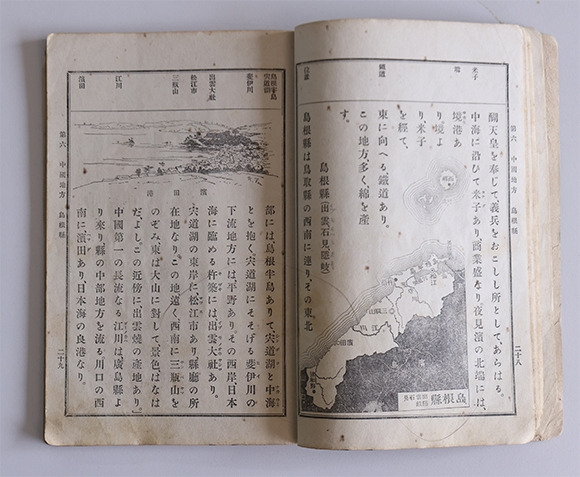 米子
境
第六 中國地方 島根縣
二十八
醐天皇を奉じて義兵をおこしし所として、あらはる。
中海に沿ひて米子あり、商業盛なり、夜見濱の北端には、
境港あ
り、境よ
り、米子
を經て、
東に向へる鐵道あり。
この地方、多く、綿を產
す。
島根縣 出雲 石見 隱岐
島根縣は鳥取縣の西南に連り、その東北
三瓶山
江川
濱田
島根縣
島根半島
宍道湖
斐伊川
出雲大社
松江市
三瓶山
江川
濱田
濱田港
第六 中國地方 島根縣
二十九
部には島根半島ありて、宍道湖と中海
とを抱く、宍道湖にそそげる斐伊川の
下流地方には平野あり、その西岸日本
海に臨める杵築には出雲大社あり。
宍道湖の東岸に松江市あり、縣廳の所
在地なり、この地遠く西南に三瓶山を
のぞみ、東は大山に對して、景色はなは
だよし、この近傍に出雲燒の產地あり。
中國第一の長流なる江川は廣島縣よ
り來り、縣の中部地方を流る、川口の西
南に濱田あり、日本海の良港なり。